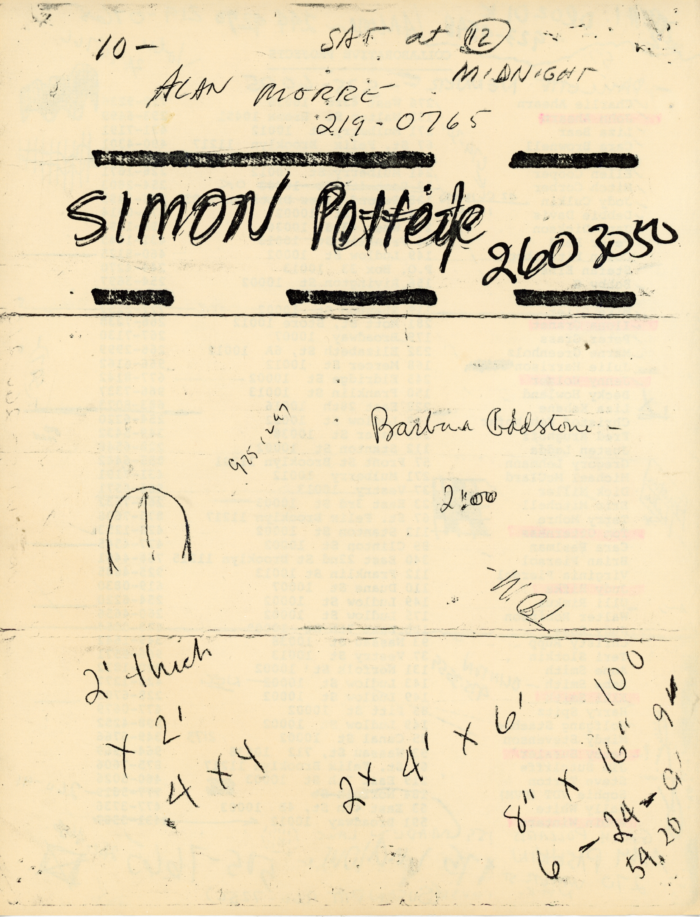 10- SAT at 12
MIDNIGHT
ALAN MORRE
219-0765
SIMON
260 3050
Barbara
2:00
2' thick
x 2'
4 x 4
2 x 4' x 6'
8" x 16" 100
6 - 24 -
54.20